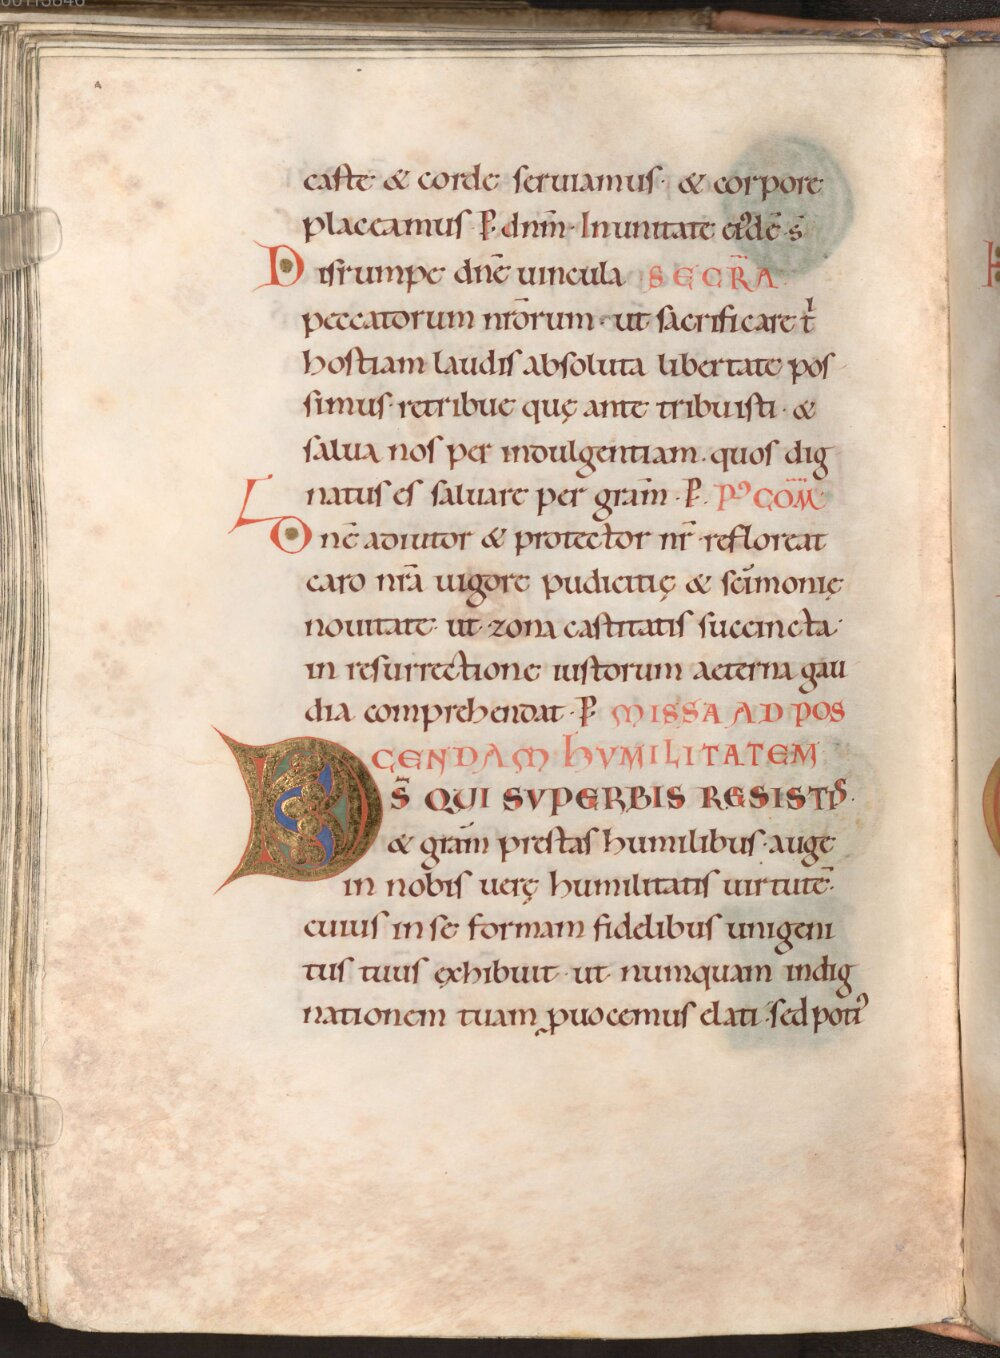 caste & corde seruiamus· & corpore
placeamus P̶· dnm̄· In unitate eide᷒ s̄
Disrumpe dnē uincula SECR̄A
peccatorum nrōrum· ut sacrificare t̄
hostiam laudis absoluta libertate pos
simus· retribue quę ante tribuisti· &
salua nos per indulgentiam· quos dig
natus es saluare per grām· P̶. Pꝰ COM̄
Dnē adiutor & protector nr̄ refloreat
caro nrā uigore pudicitię & sc̄imonię
nouitate· ut zona castitatis succincta·
in resurrectione iustorum aeterna gau
dia comprehendat· P̶ MISSA AD POS
CENDAM HVMILITATEM
DS̄ QUI SVPERBIS RESISTIS·
& grām prestas humilibus· auge
in nobis uerę humilitatis uirtutē·
cuius in se formam fidelibus unigeni
tus tuus exhibuit· ut numquam indig
nationem tuam ꝓuocemus elati· sed potiꝰ